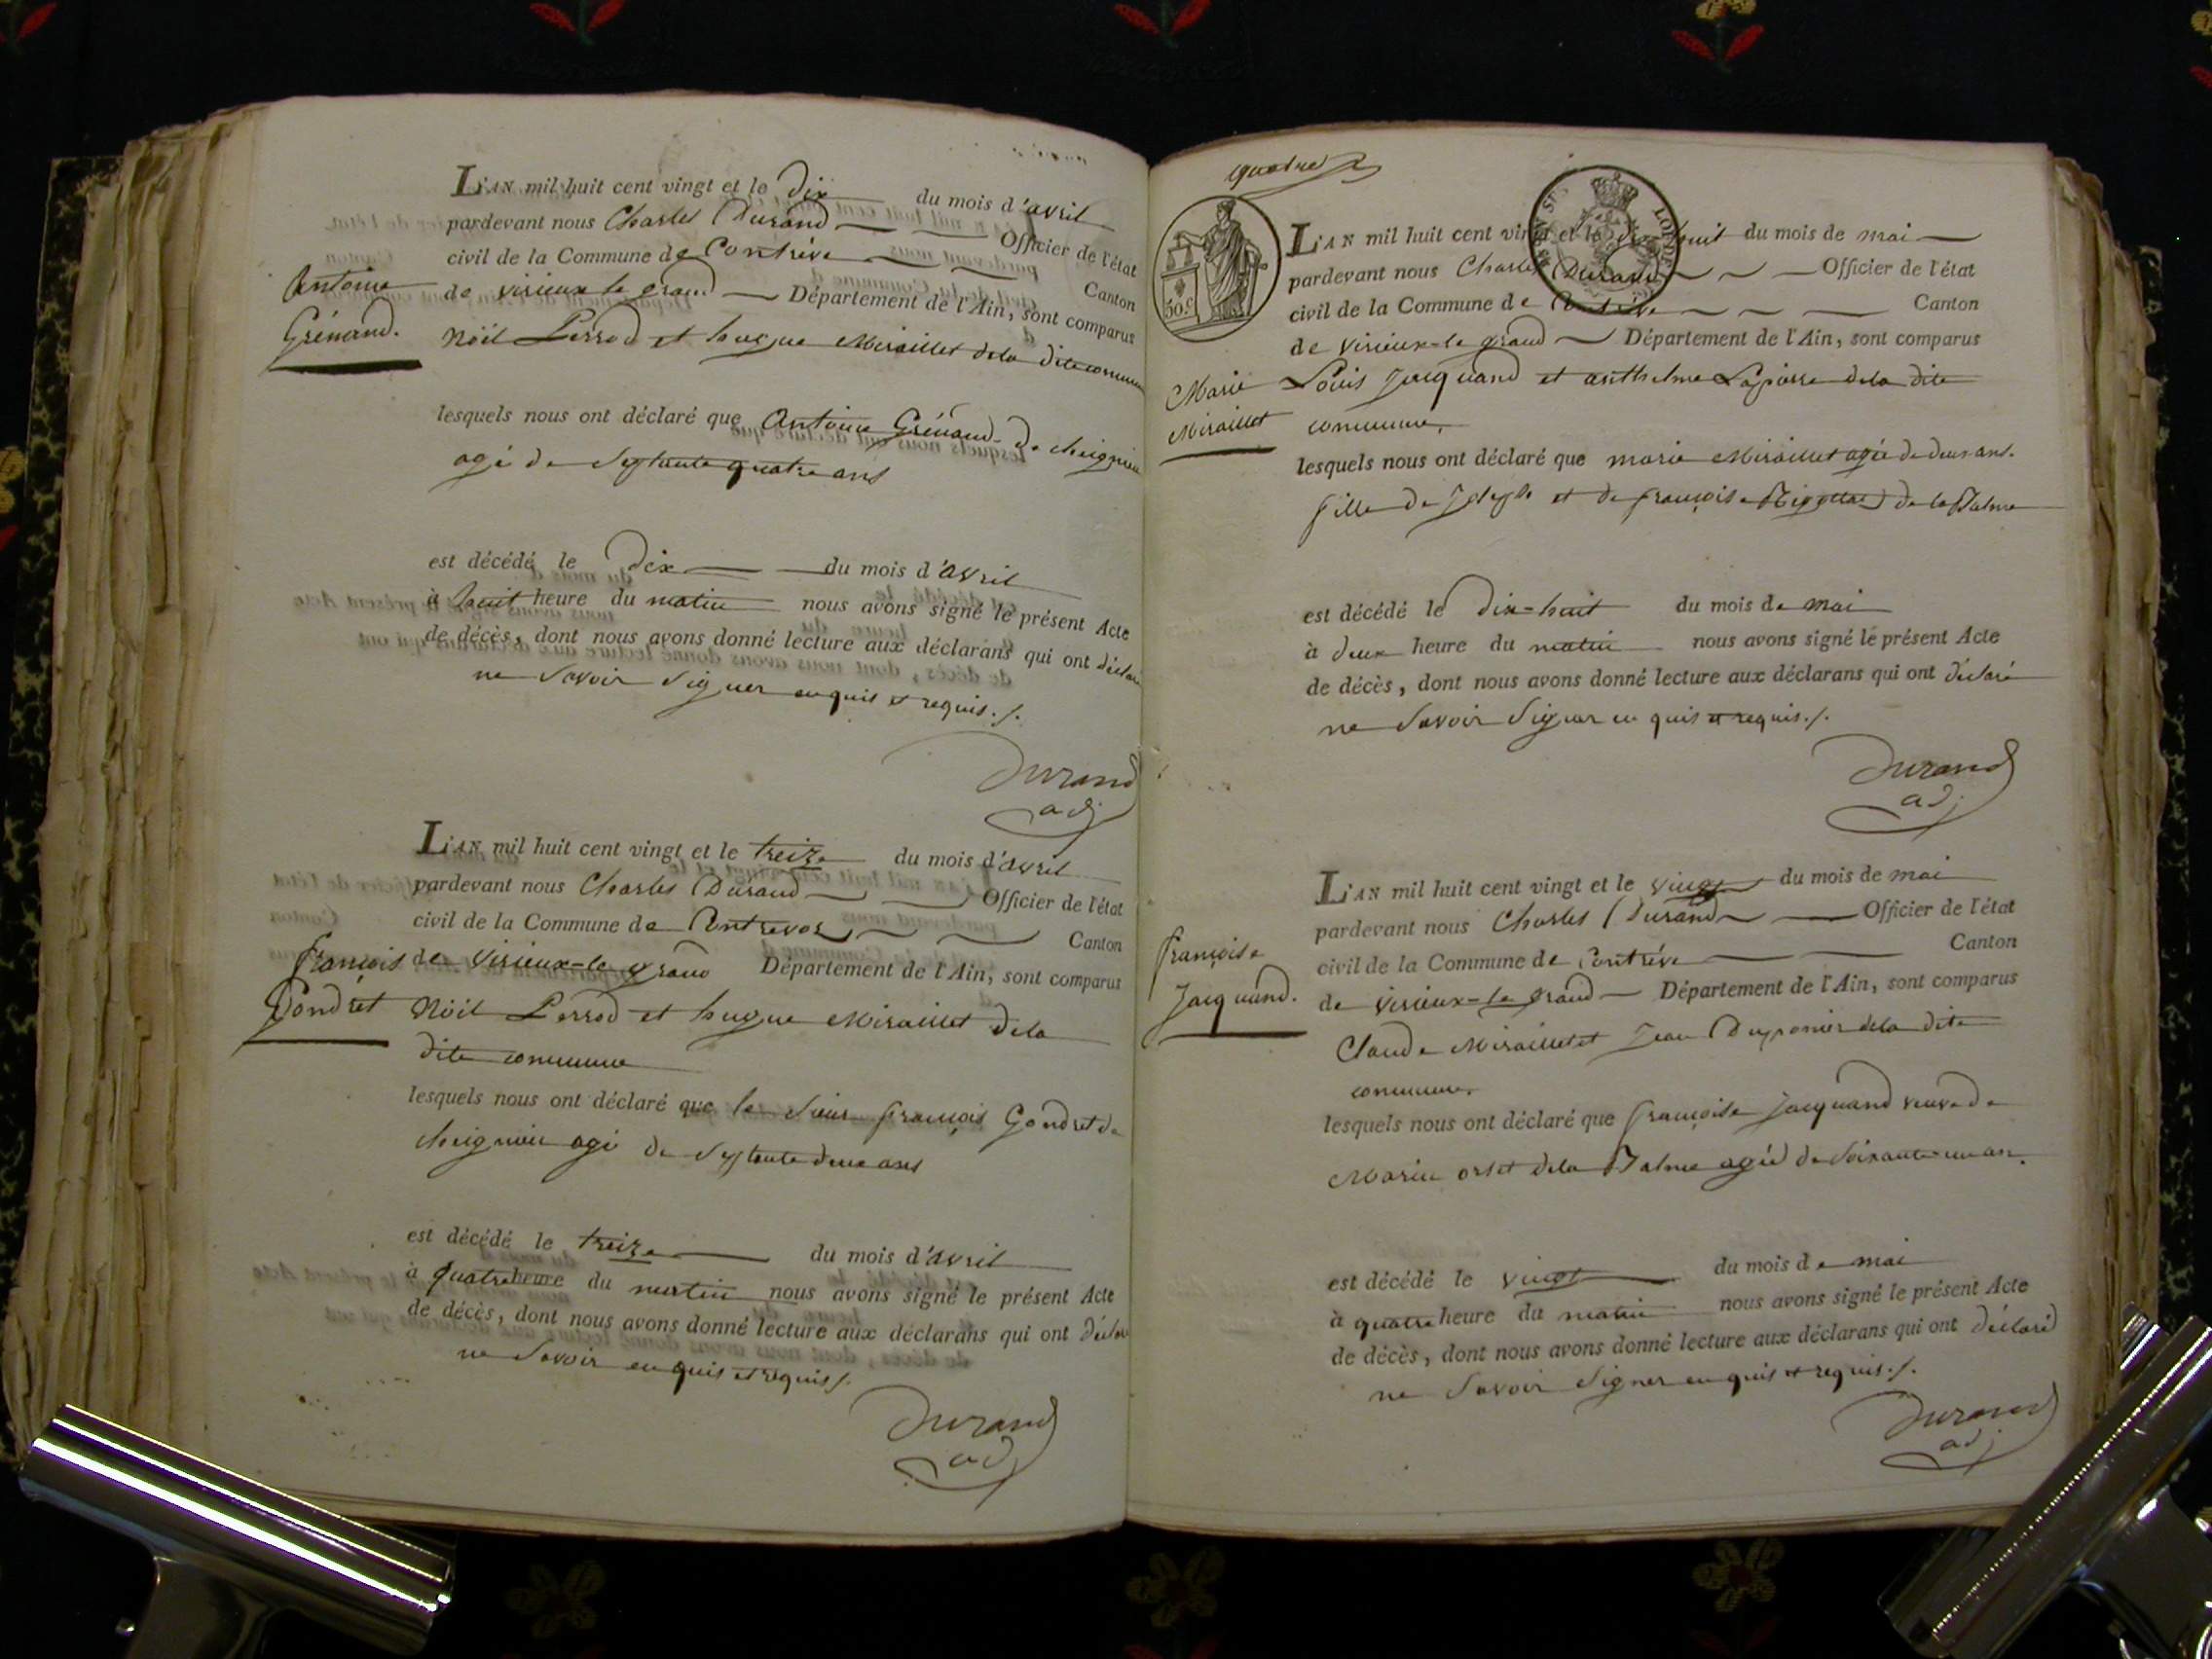 L'AN mil huit cent vingt et le dix du mois d'avril
pardevant nous Charles Durand Officier de l'état
civil de la Commune de Contrève Canton
de virieux le grand Département de l'Ain, sont comparus
Antoine
Grénand.
Nöel Perrod et hugue Miraillet dela dite commune
lesquels nous ont déclaré que Antoine Grénand de cheignieu
agé de Septante quatre ans
est décédé le dix du mois d'avril
à huit heure du matin nous avons signé le présent Acte
de décès, dont nous avons donné lecture aux déclarans qui ont déclaré
ne Savoir Signer enquis et requis ./.
Durand
adj
L'AN mil huit cent vingt et le treize du mois d'avril
pardevant nous Charles Durand Officier de l'état
civil de la Commune de Contrevoz Canton
de Virieux-le grand Département de l'Ain, sont comparus
françois
Gondret
Nöel Perrod et hugue Miraillet dela
dite commune
lesquels nous ont déclaré que le Sieur françois Gondret de
cheignieu agé de Septente deux ans
est décédé le treize du mois d'avril
à quatre heure du matin nous avons signé le présent Acte
de décès, dont nous avons donné lecture aux déclarans qui ont déclaré
ne Savoir enquis et requis ./.
Durand
adj
quatre
50.c
L'AN mil huit cent vingt et le dix huit du mois de mai
pardevant nous Charles Durand Officier de l'état
civil de la Commune de Contrève Canton
de virieux-le grand Département de l'Ain, sont comparus
Marie
Miraillet
Louis Jacquand et anthelme Lapierre dela dite
commune.
lesquels nous ont déclaré que marie Miraillet agée de deux ans.
fille de Joseph et de françoise de la Balme
est décédé le dix-huit du mois de mai
à deux heure du matin nous avons signé le présent Acte
de décès, dont nous avons donné lecture aux déclarans qui ont déclaré
ne Savoir Signer enquis et requis ./.
Durand
adj
L'AN mil huit cent vingt et le vingt du mois de mai
pardevant nous Charles Durand Officier de l'état
civil de la Commune de Contrève Canton
de virieux-le grand Département de l'Ain, sont comparus
françoise
Jacquand.
Claude Miraillet et Jean Duponier dela dite
commune.
lesquels nous ont déclaré que françoise Jacquand veuve de
Marin orset dela Balme agée de Soixante un an.
est décédé le vingt du mois de mai
à quatre heure du matin nous avons signé le présent Acte
de décès, dont nous avons donné lecture aux déclarans qui ont déclaré
ne Savoir Signer enquis et requis ./.
Durand
adj